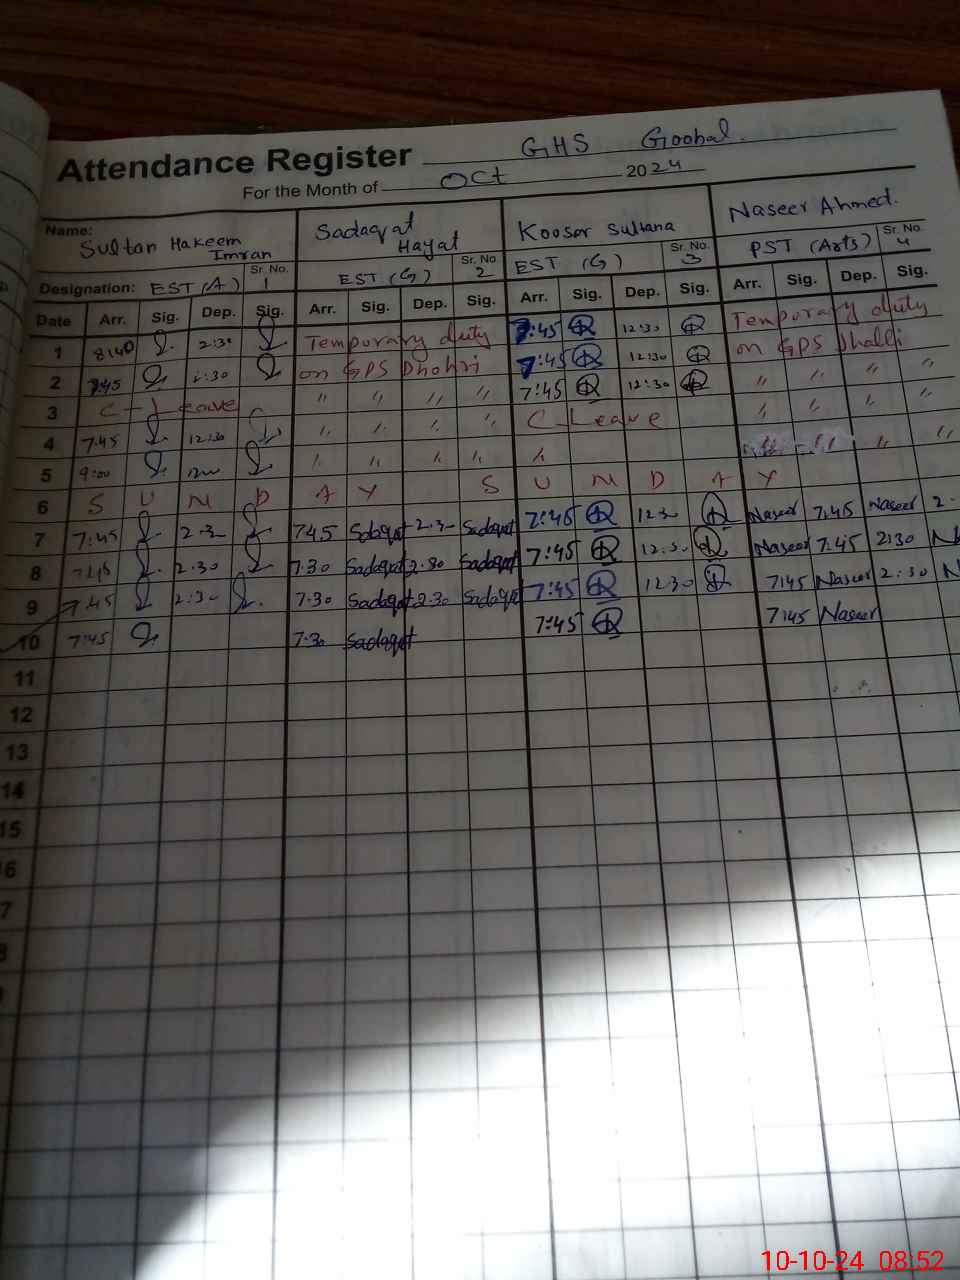 Attendance Register GHS Goohal.
For the Month of Oct 2024
Name: Sultan Hakeem Imran Sadaqat Hayat Koosar Sultana Naseer Ahmed.
Designation: EST (A) Sr. No. 1 EST (G) Sr. No 2 EST (G) Sr. No. 3 PST (Arts) Sr. No. 4
Date Arr. Sig. Dep. Sig. Arr. Sig. Dep. Sig. Arr. Sig. Dep. Sig. Arr. Sig. Dep. Sig.
1 8:40 2:30 Temporary duty 7:45 12:30 Temporary duty
2 7:45 2:30 on GPS Dhohri 7:45 12:30 on GPS Dhalli
3 C-Leave " " " " 7:45 12:30 " " " "
4 7:45 12:30 " " " " C-Leave " " " "
5 9:00 " " " " " " "
6 S U N D A Y S U N D A Y
7 7:45 2:3 7:45 Sadaqat 2:3 Sadaqat 7:45 12:30 Naseer 7:45 Naseer 2
8 7:45 2:30 7:30 Sadaqat 2:30 Sadaqat 7:45 12:30 Naseer 7:45 2:30 N
9 7:45 2:30 7:30 Sadaqat 2:30 Sadaqat 7:45 12:30 7:45 Naseer 2:30 N
10 7:45 7:30 Sadaqat 7:45 7:45 Naseer
11
12
13
14
15
6
7
10-10-24 08:52